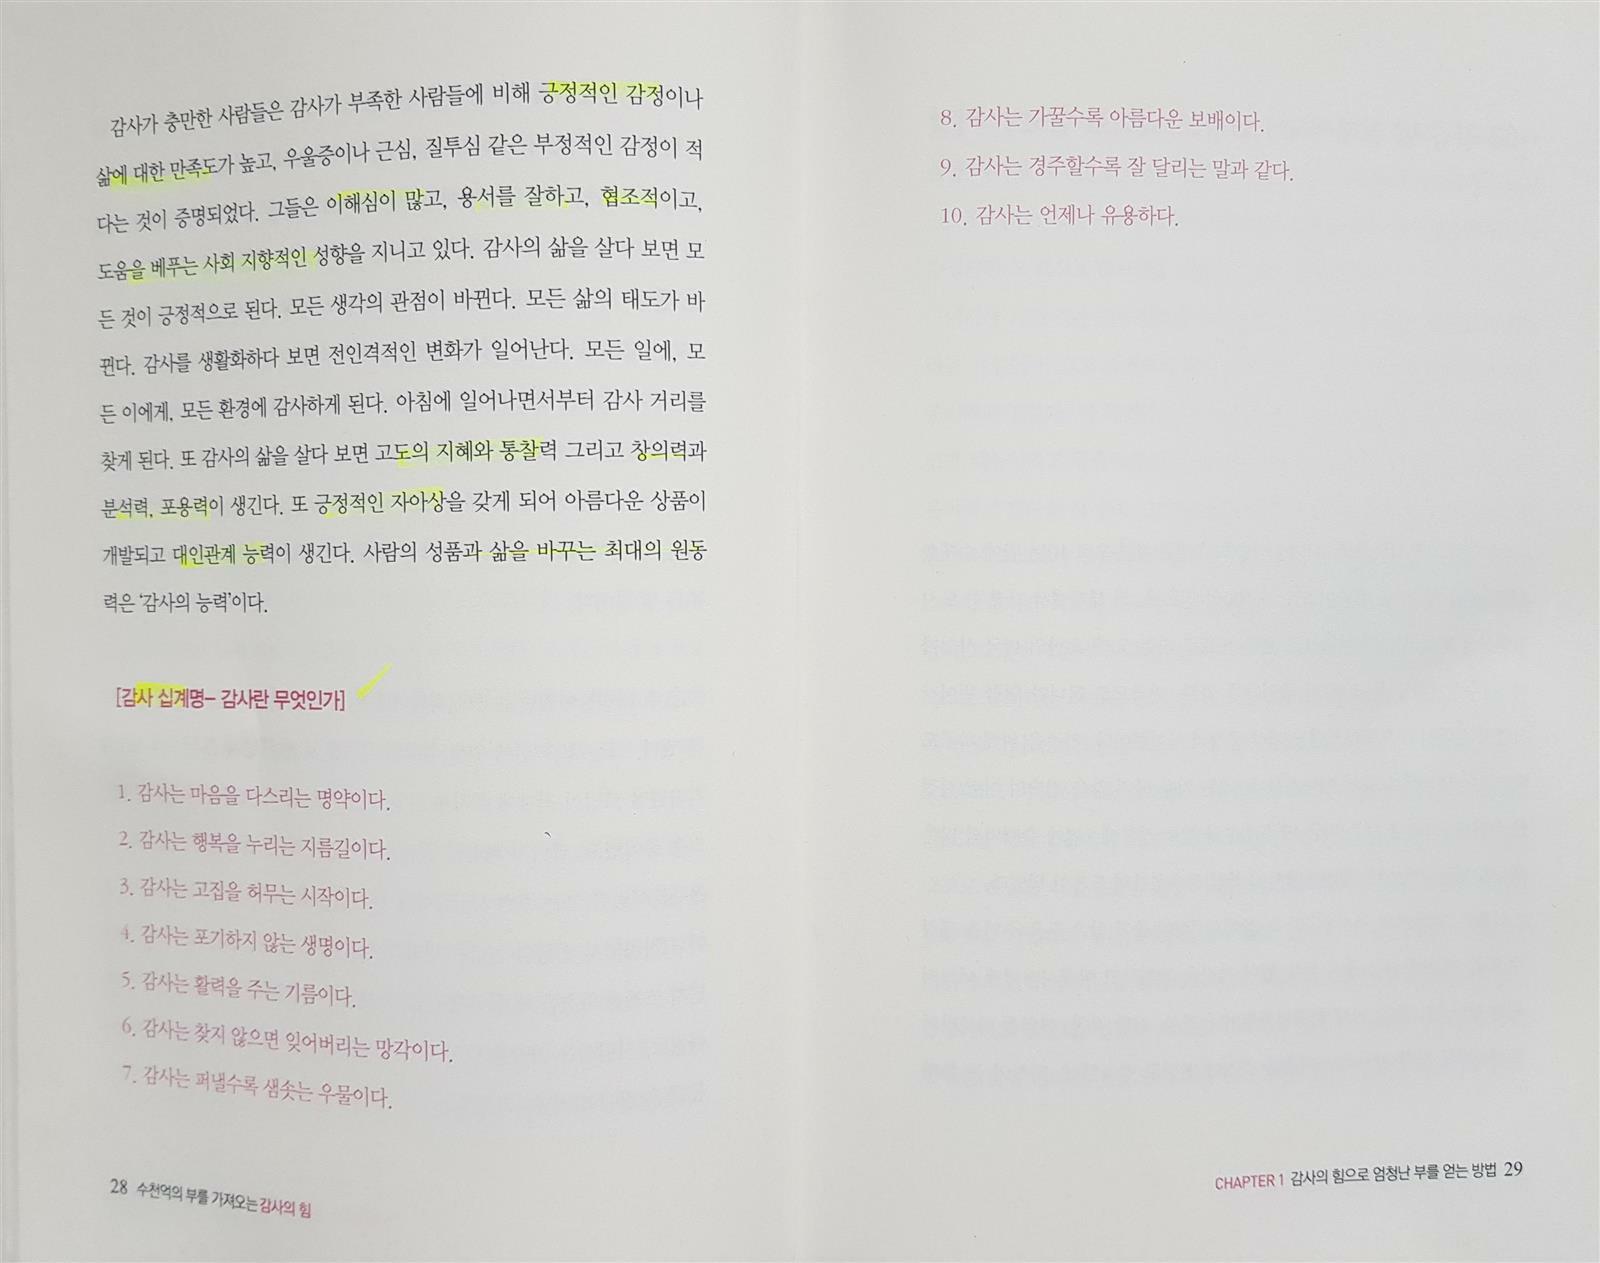 감사가 충만한 사람들은 감사가 부족한 사람들에 비해 긍정적인 감정이나
삶에 대한 만족도가 높고, 우울증이나 근심, 질투심 같은 부정적인 감정이 적
다는 것이 증명되었다. 그들은 이해심이 많고, 용서를 잘하고, 협조적이고,
도움을 베푸는 사회 지향적인 성향을 지니고 있다. 감사의 삶을 살다 보면 모
든 것이 긍정적으로 된다. 모든 생각의 관점이 바뀐다. 모든 삶의 태도가 바
뀐다. 감사를 생활화하다 보면 전인격적인 변화가 일어난다. 모든 일에, 모
든 이에게, 모든 환경에 감사하게 된다. 아침에 일어나면서부터 감사 거리를
찾게 된다. 또 감사의 삶을 살다 보면 고도의 지혜와 통찰력 그리고 창의력과
분석력, 포용력이 생긴다. 또 긍정적인 자아상을 갖게 되어 아름다운 상품이
개발되고 대인관계 능력이 생긴다. 사람의 성품과 삶을 바꾸는 최대의 원동
력은 '감사의 능력'이다.
[감사 십계명– 감사란 무엇인가]
1. 감사는 마음을 다스리는 명약이다.
2. 감사는 행복을 누리는 지름길이다.
3. 감사는 고집을 허무는 시작이다.
4. 감사는 포기하지 않는 생명이다.
5. 감사는 활력을 주는 기름이다.
6. 감사는 찾지 않으면 잊어버리는 망각이다.
7. 감사는 퍼낼수록 샘솟는 우물이다.
28 수천억의 부를 가져오는 감사의 힘
8. 감사는 가꿀수록 아름다운 보배이다.
9. 감사는 경주할수록 잘 달리는 말과 같다.
10. 감사는 언제나 유용하다.
CHAPTER 1 감사의 힘으로 엄청난 부를 얻는 방법 29